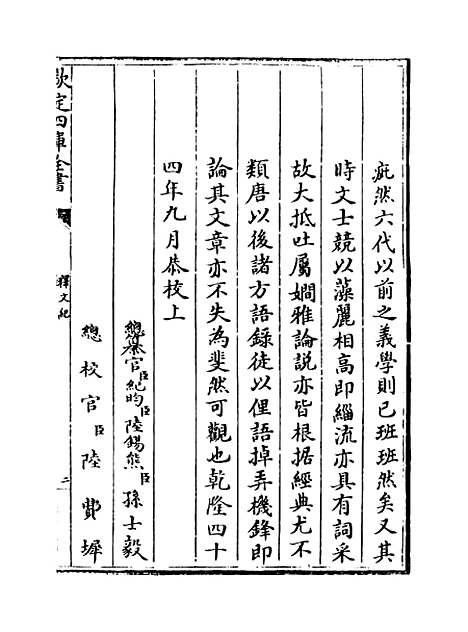 疵然六代以前之義學則已班班然矣又其
時文士競以藻麗相高即緇流亦具有詞采
故大抵吐屬嫺雅論說亦皆根据經典尤不
類唐以後諸方語錄徒以俚語掉弄機鋒即
論其文章亦不失為斐然可觀也乾隆四十
四年九月恭校上
總纂官臣紀昀臣陸錫熊臣孫士毅
總校官臣陸費墀
欽定四庫全書
釋文紀
二